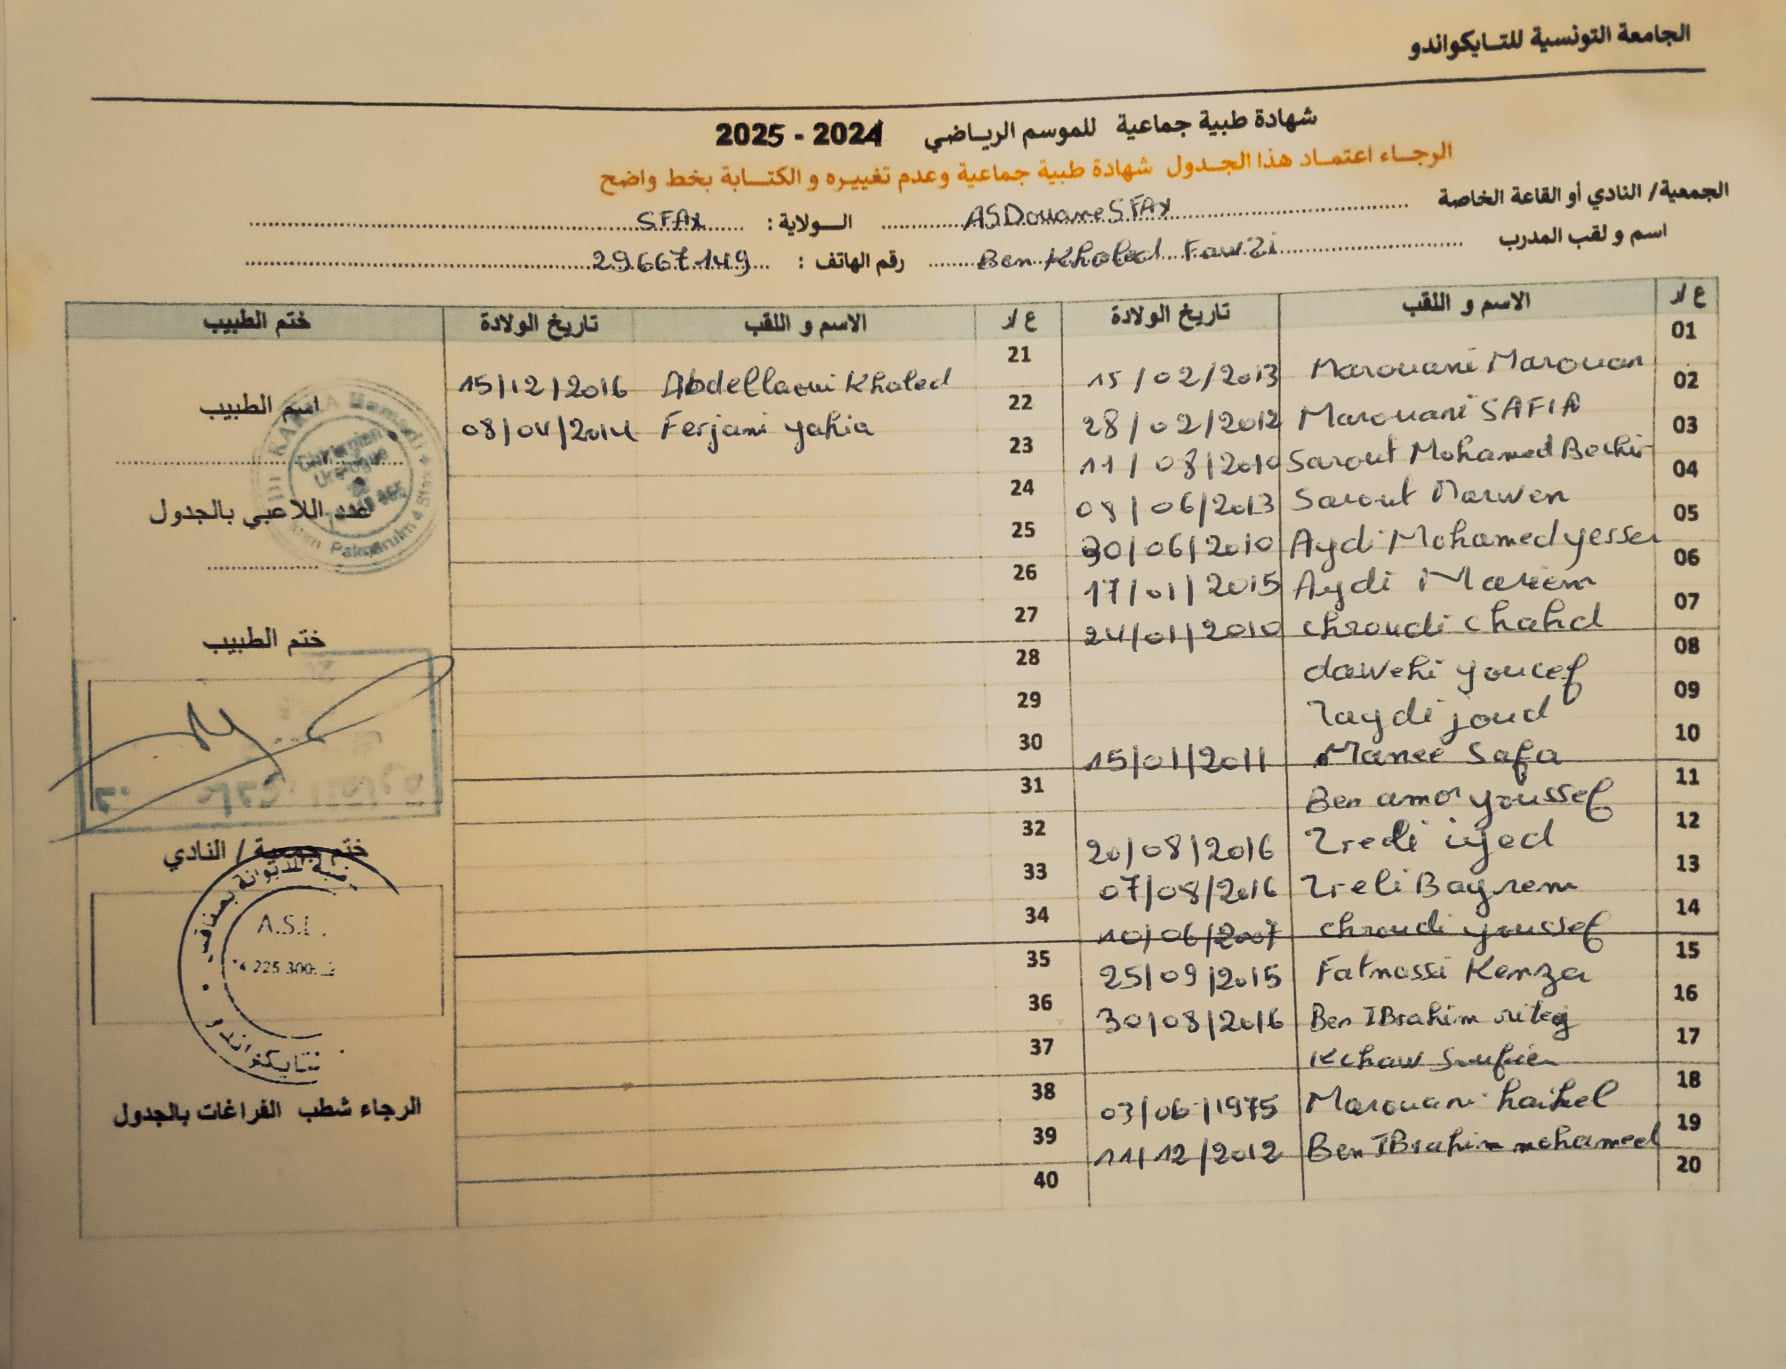 الجامعة التونسية للتايكواندو
شهادة طبية جماعية للموسم الرياضي 2024 - 2025
الرجاء اعتماد هذا الجدول شهادة طبية جماعية وعدم تغييره و الكتابة بخط واضح
الجمعية/ النادي أو القاعة الخاصة ASDouane SFAX الولاية : SFAX
اسم و لقب المدرب Ben Khaled Fawzi رقم الهاتف : 29667149
ع/ر الاسم و اللقب تاريخ الولادة ع/ر الاسم و اللقب تاريخ الولادة ختم الطبيب
01 Marouani Marouan 15/02/2013 21 Abdellaoui Khaled 15/12/2016
02 Marouani SAFIA 28/02/2012 22 Ferjani yahia 08/04/2014
03 Sarout Mohamed Bechir 11/08/2010 23
04 Sarout Marwen 08/06/2013 24
05 Aydi Mohamed yesser 30/06/2010 25
06 Aydi Mariem 17/01/2015 26
07 chroudi chahd 24/01/2010 27
08 dawehi youcef 28
09 Zaydi joud 29
10 Manee Safa 15/01/2011 30
11 Ben amor youssef 31
12 Zredi iyed 20/08/2016 32
13 Zreli Bayrem 07/08/2016 33
14 chroudi youssef 10/06/2007 34
15 Fatnassi Kenza 25/09/2015 35
16 Ben IBrahim riteg 30/08/2016 36
17 Kchaw Soufien 37
18 Marouani haikel 03/06/1975 38
19 Ben IBrahim mohamed 11/12/2012 39
20 40
اسم الطبيب
KAKKA Hamadi
Chirurgien
Urologue
عدد اللاعبي بالجدول
ختم الطبيب
ختم جمعية / النادي
بصفاقس
A.S.
للتايكواندو
الرجاء شطب الفراغات بالجدول